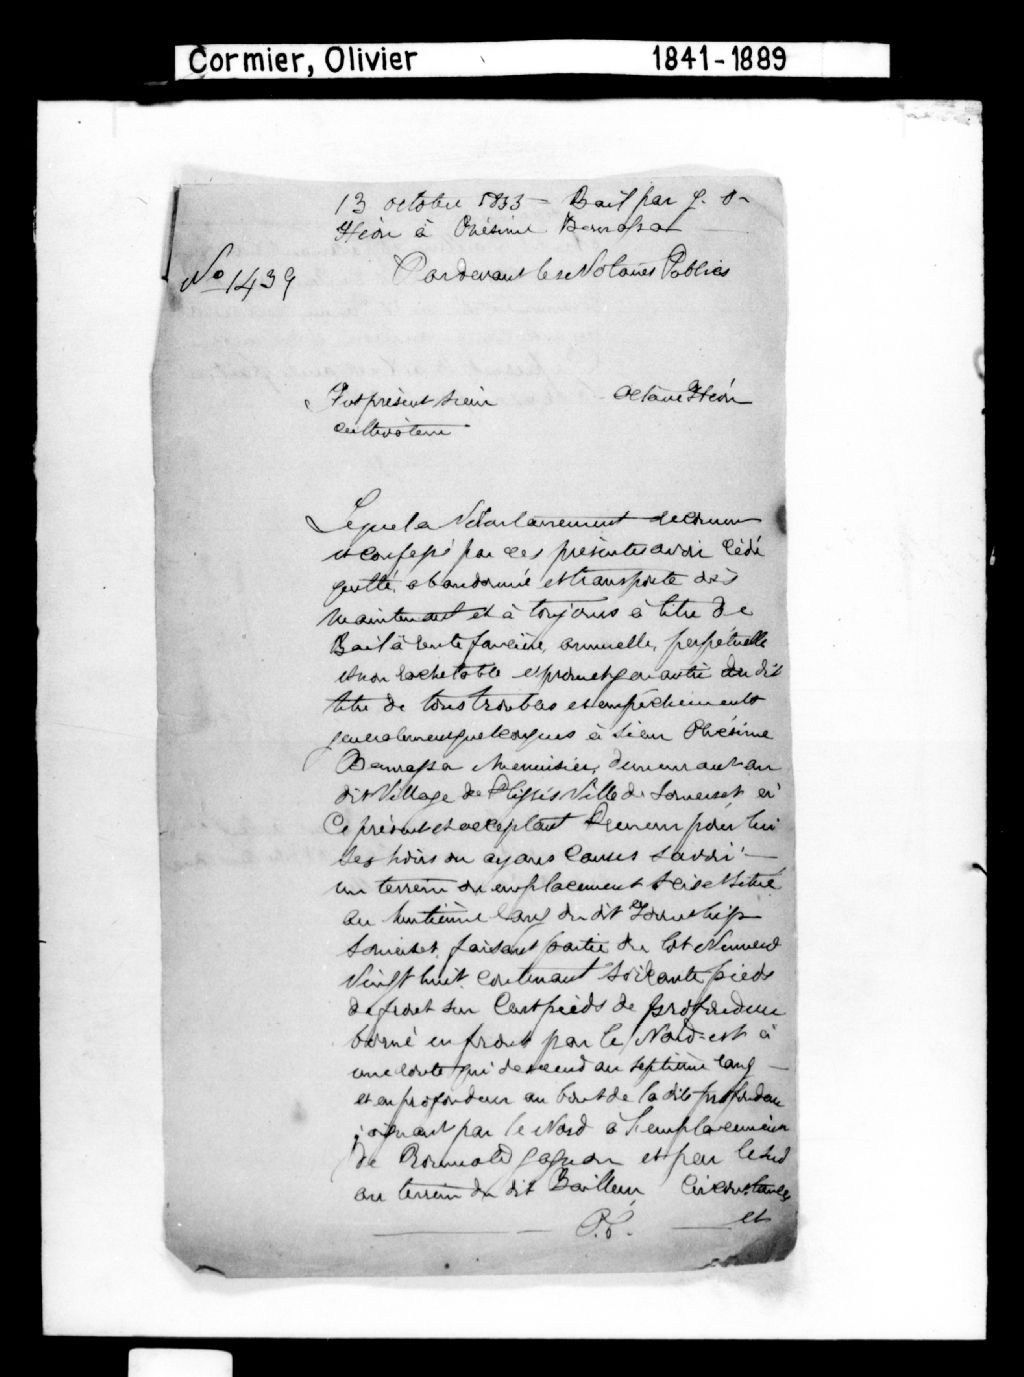 Cormier, Olivier 1841-1889
13 octobre 1853 – Bail par J. O.
Héon à Onésime Barrassa
No 1439
Pardevant les Notaires Publics
Fut présent Sieur Octave Héon
cultivateur
Lequel a Volontairement reconnu
et confessé par ces présentes avoir Cédé
quitté, abandonné et transporté dès
maintenant et à toujours à titre de
Bail à rente foncière, annuelle, perpétuelle
et non rachetable et promet garantir du dit
titre de tous troubles et empêchements
generalement quelconques à Sieur Onésime
Barrassa Menuisier, demeurant au
dit Village de Plessis Ville de Somerset à
Ce présent et acceptant Preneur pour lui
Ses hoirs ou ayans Causes Savoir: –
un terrein ou emplacement Sis et Situé
au huitième rang du dit Township
Somerset, faisant partie du lot Numero
Vingt huit, contenant Soixante pieds
de front sur Cent pieds de profondeur
borné en front par le Nord-est à
une route qui descend au septième rang –
et en profondeur au bout de la dite profondeur
joignant par le Nord à l'emplacement
de Romuald Gagnon et par le Sud
au terrein du dit Bailleur, Circonstances
et